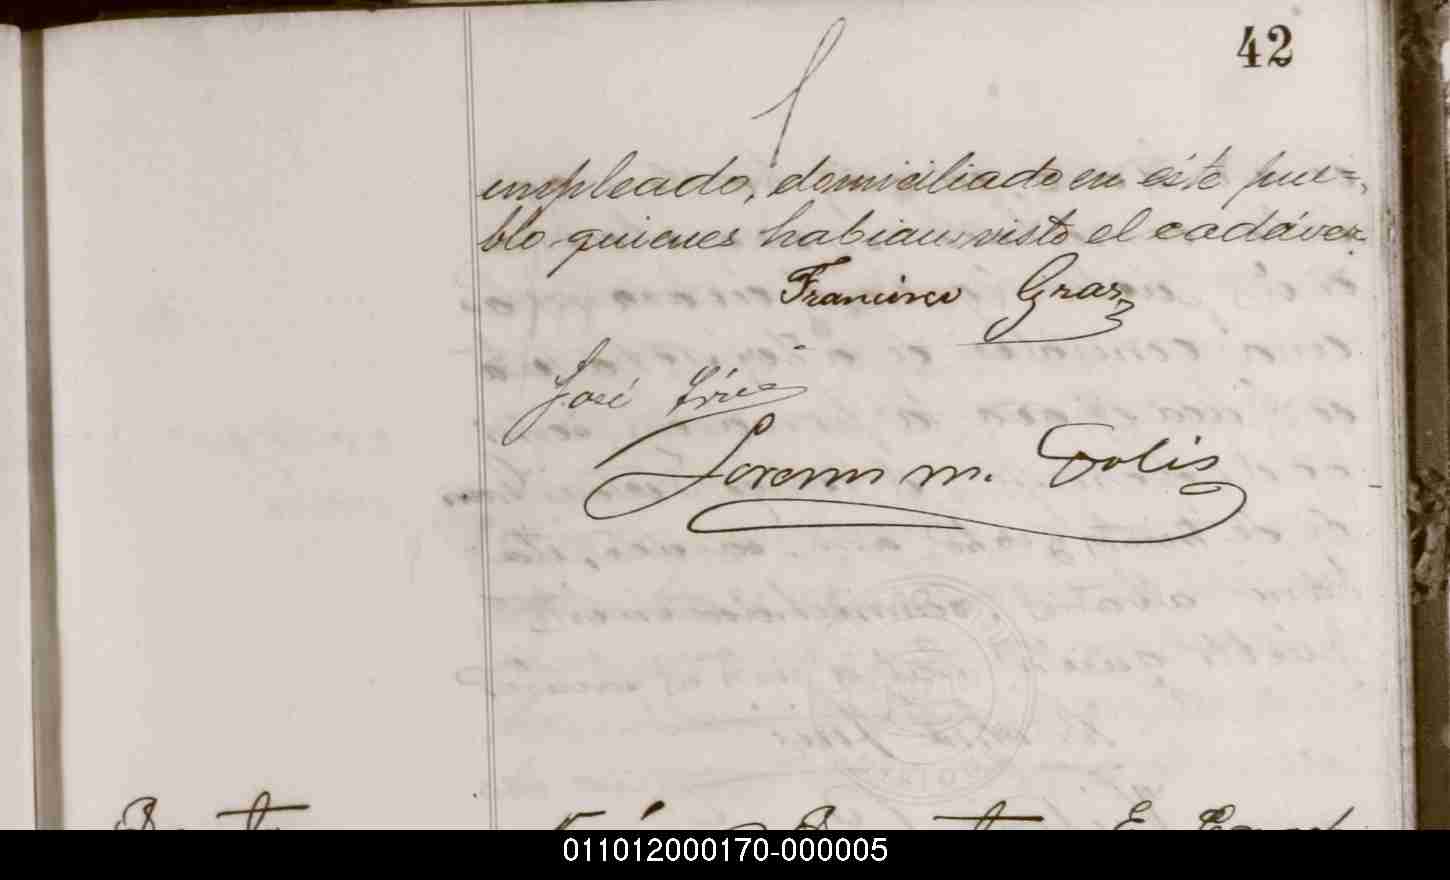 42
empleado, domiciliado en éste pue=
blo quienes habian visto el cadáver.
Francisco Gras
José
Lorenzo M. Solis
011012000170-000005